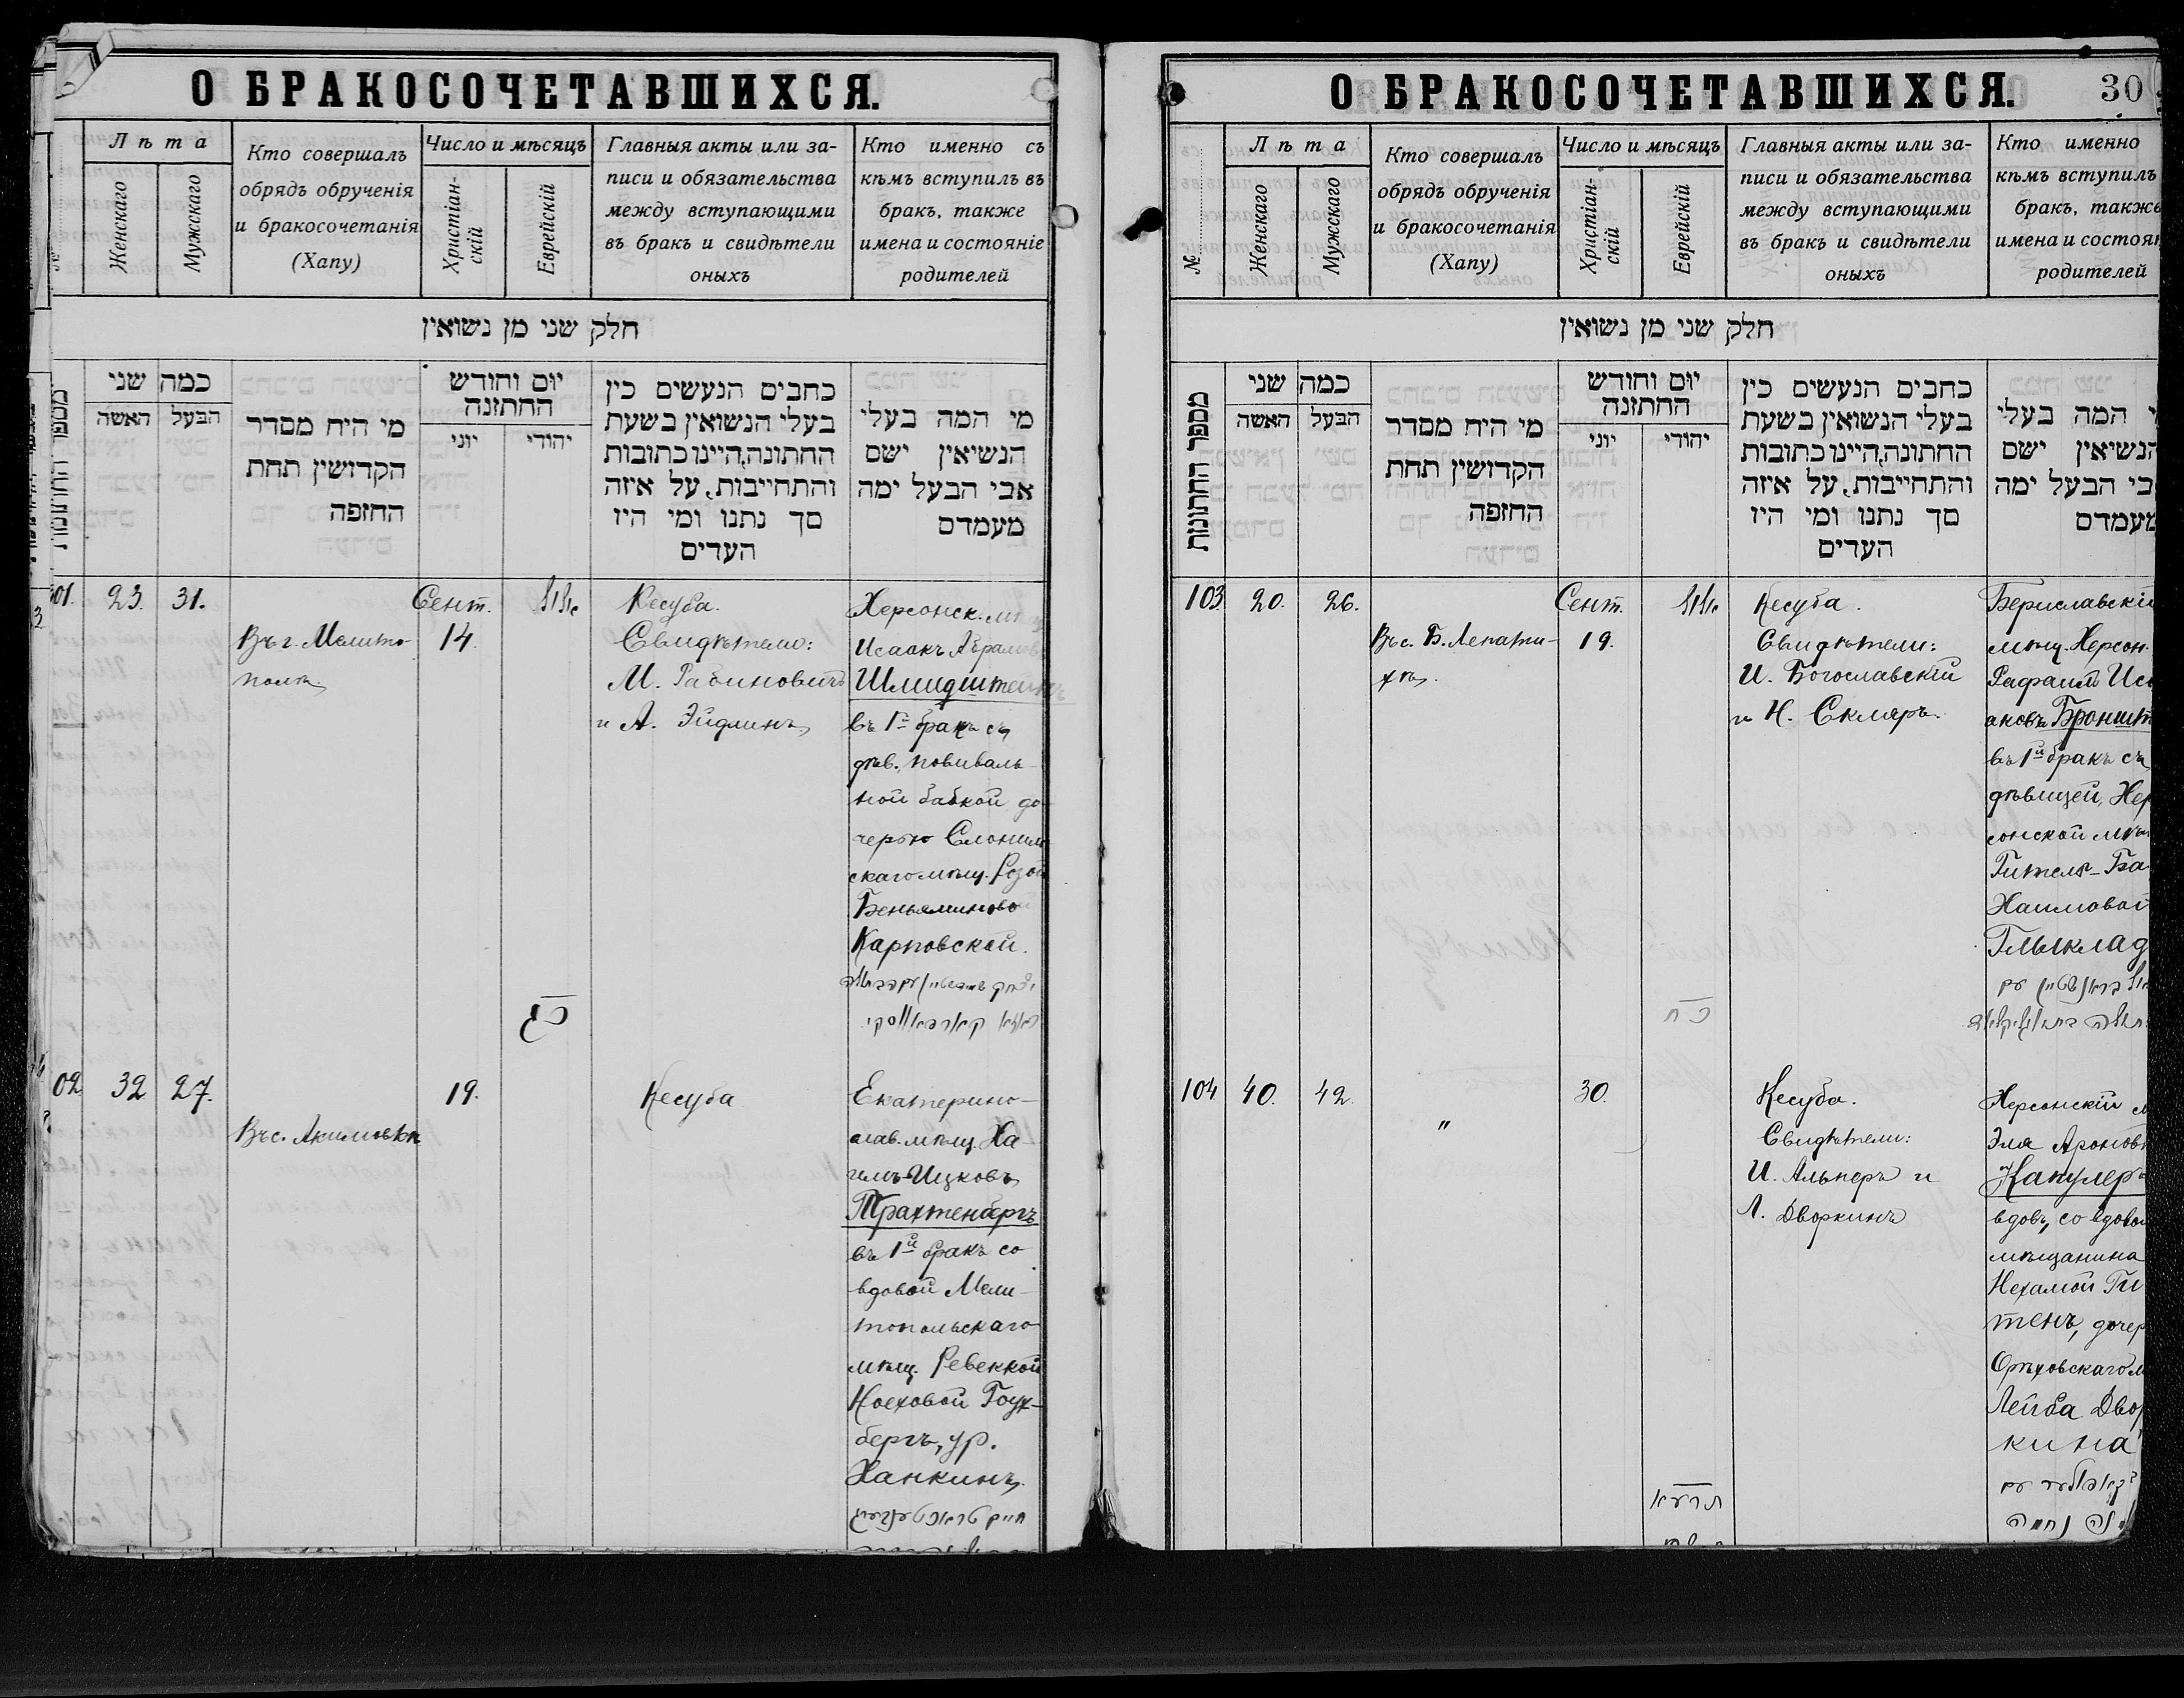 О БРАКОСОЧЕТАВШИХСЯ.
Лѣта
Женскаго
Мужскаго
Кто совершалъ
обрядъ обрученія
и бракосочетанія
(Хапу)
Число и мѣсяцъ
Христіан-
скій
Еврейскій
Главныя акты или за-
писи и обязательства
между вступающими
въ бракъ и свидѣтели
оныхъ
Кто именно съ
кѣмъ вступилъ въ
бракъ, также
имена и состояніе
родителей
חלק שני מן נשואין
מספר החתונות
כמה שני
האשה
הבעל
מי היח מסדר
הקדושין תחת
החופה
יום וחודש
החתונה
יוני
יהודי
כחבים הנעשים כין
בעלי הנשואין בשעת
החתונה,היינו כתובות
והתחייבות, על איזה
סך נתנו ומי היו
העדים
מי המה בעלי
הנשיאין ישם
אבי הבעל ימה
מעמדם
01.
23.
31.
Въ г. Мелито-
полѣ
Сент.
14.
אלול
כג
Кесуба.
Свидѣтели:
М. Рабиновичъ
и А. Эйдлинъ
Херсонск. мѣщ
Исаакъ Абрамовъ
Шмидштейнъ
въ 1й бракъ съ
дѣв., повиваль-
ной бабкой до-
черью Слоним-
скаго мѣщ. Розой
Беньяминово
Карповской.
02
32
27.
Въ с. Акимовкѣ
19.
Кесуба
Екатерино-
слав. мѣщ. Ха-
имъ Ицковъ
Трахтенбергъ
въ 1й бракъ со
вдовой Мели-
топольскаго
мѣщ. Ревеккой
Ноеховой Гоух-
бергъ, ур.
Ханкинъ.
חיים טראכטענבערג
О БРАКОСОЧЕТАВШИХСЯ.
30
№
Лѣта
Женскаго
Мужскаго
Кто совершалъ
обрядъ обрученія
и бракосочетанія
(Хапу)
Число и мѣсяцъ
Христіан-
скій
Еврейскій
Главныя акты или за-
писи и обязательства
между вступающими
въ бракъ и свидѣтели
оныхъ
Кто именно
кѣмъ вступилъ
бракъ, также
имена и состоян
родителей
חלק שני מן נשואין
מספר החתונות
כמה שני
האשה
הבעל
מי היח מסדר
הקדושין תחת
החופה
יום וחודש
החתונה
יוני
יהודי
כחבים הנעשים כין
בעלי הנשואין בשעת
החתונה,היינו כתובות
והתחייבות, על איזה
סך נתנו ומי היו
העדים
י המה בעלי
הנשיאין ישם
בי הבעל ימה
מעמדם
103
20.
26.
Въ с. Б. Лепати-
хѣ.
Сент.
19.
אלול
כח
Кесуба.
Свидѣтели:
И. Богославскій
и Н. Скляръ.
Бериславскій
мѣщ. Херсон.
Рафаилъ Иса
аковъ Броншт
въ 1й бракъ съ
дѣвицей, Хер
сонской мѣщ
Гитель-Ба
Хаимовой
Глыклад
104
40.
42.
"
30.
תרעא
Кесуба.
Свидѣтели:
И. Альперъ и
Л. Дворкинъ
Херсонскій м
Эля Ароновъ
Капулеръ
вдов., со вдовой
мѣщанина
Нехамой Ги
тенъ, дочер
Орѣховскаго м
Лейба Двор
кина